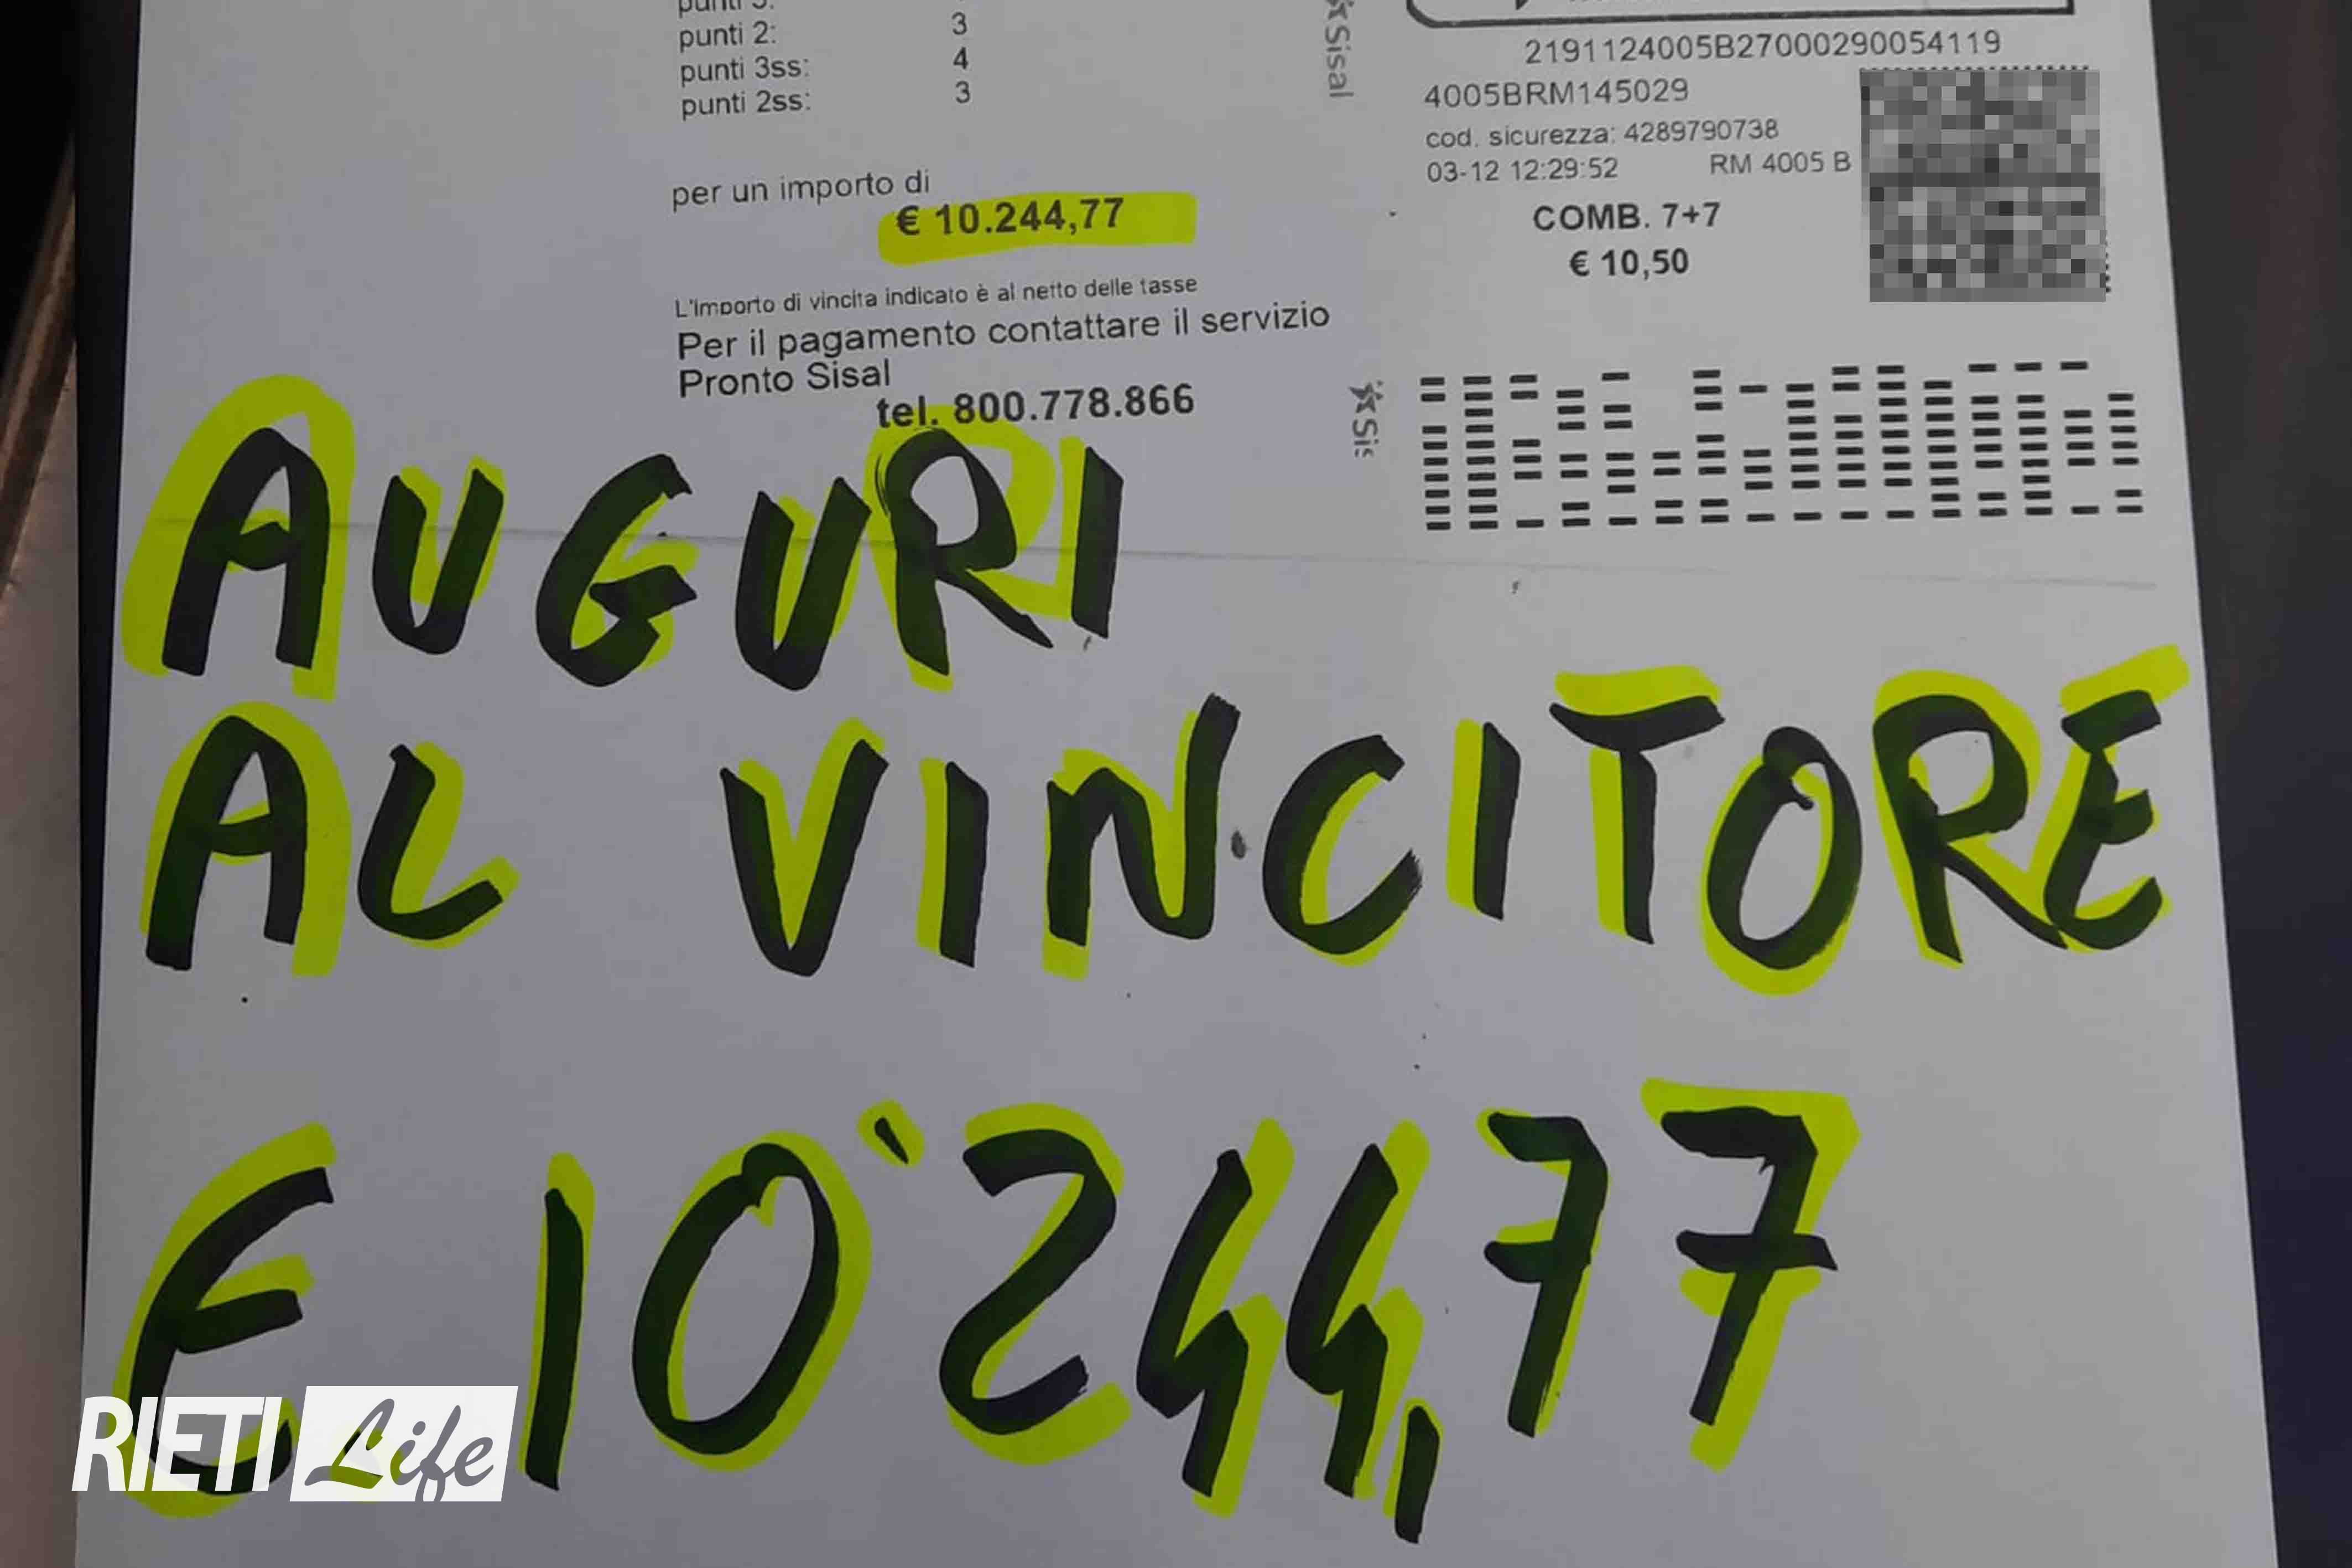 punti 3:
punti 2: 3
punti 3ss: 4
punti 2ss: 3
per un importo di
€ 10.244,77
L'importo di vincita indicato è al netto delle tasse
Per il pagamento contattare il servizio
Pronto Sisal
tel. 800.778.866
Sisal
2191124005B27000290054119
4005BRM145029
cod. sicurezza: 4289790738
03-12 12:29:52 RM 4005 B
COMB. 7+7
€ 10,50
Sis
AUGURI
AL VINCITORE
€ 10'244,77
RIETI Life